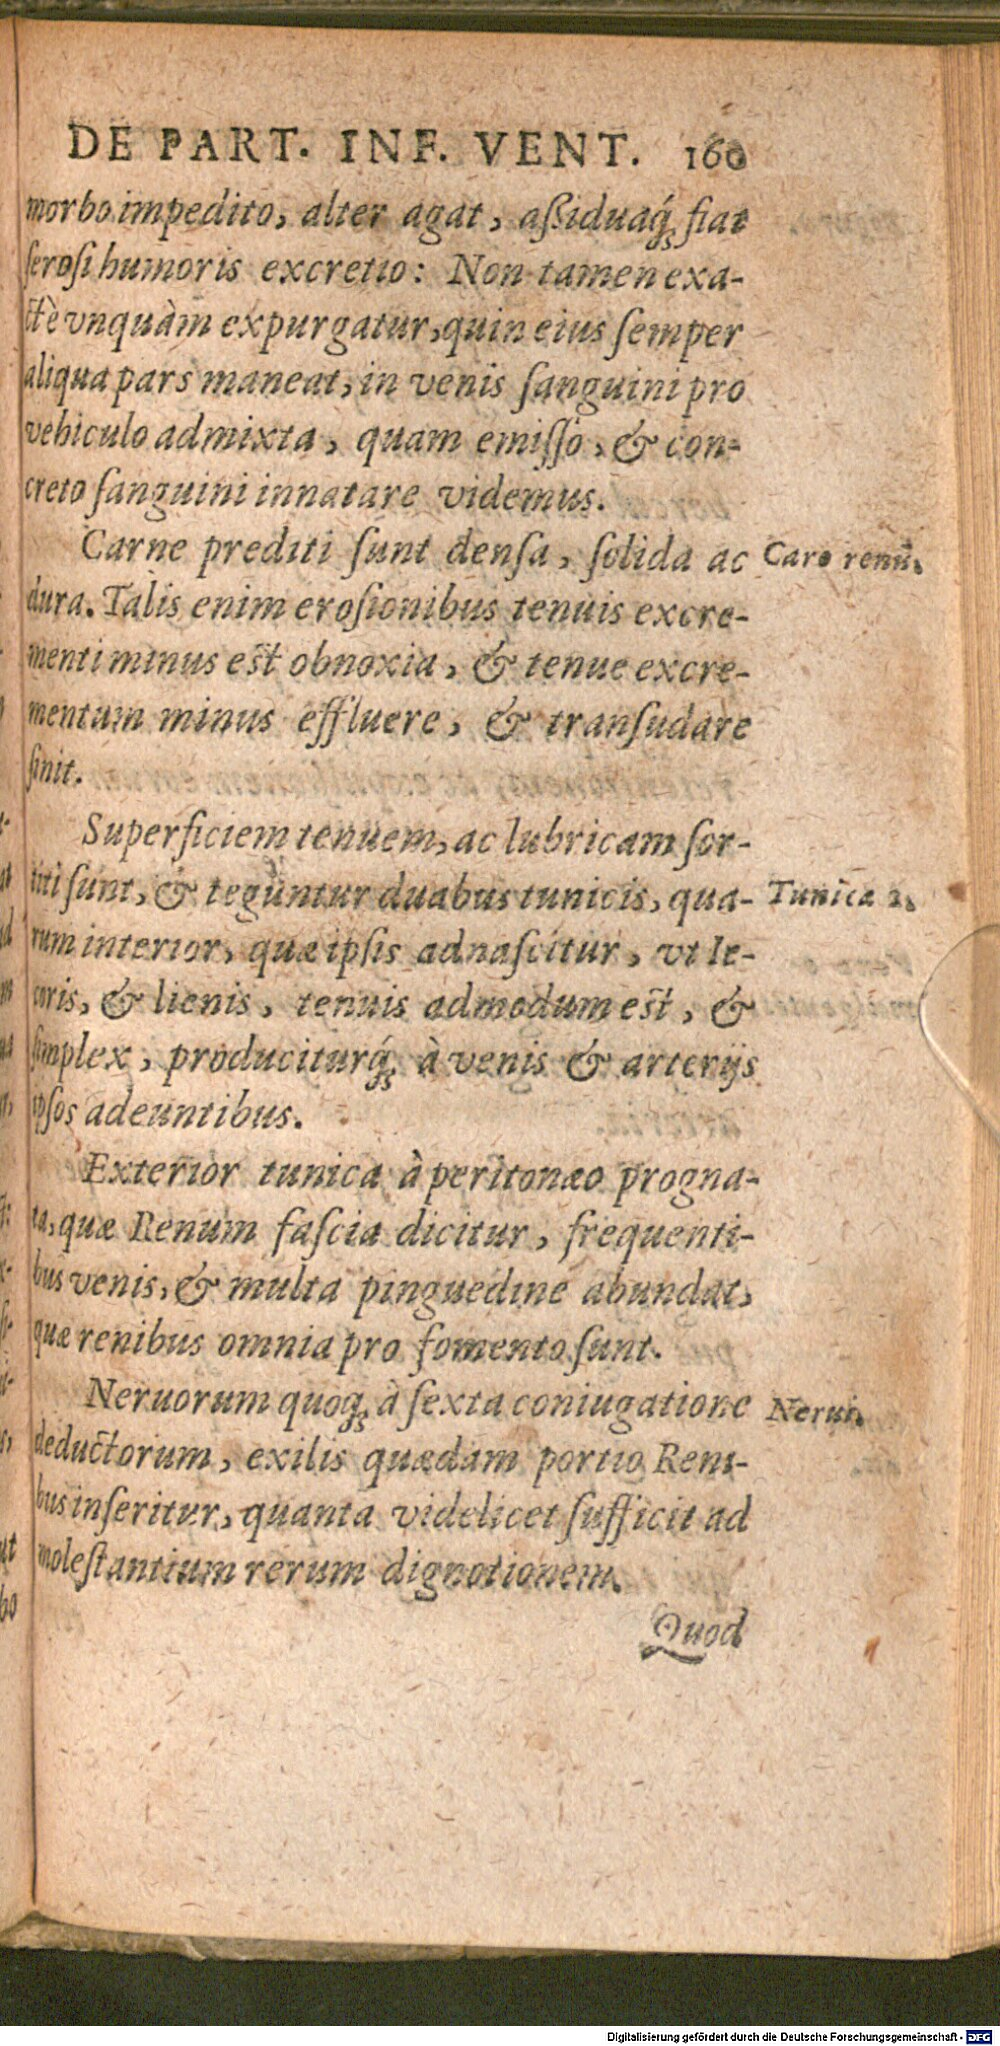 DE PART. INF. VENT. 160
morbo impedito, alter agat, aßiduaq́; fiat
ſeroſi humoris excretio: Non tamen exa-
ctè vnquàm expurgatur, quin eius ſemper
aliqua pars maneat, in venis ſanguini pro
vehiculo admixta, quam emiſſo, & con-
creto ſanguini innatare videmus.
Carne prediti ſunt denſa, ſolida ac
Caro renū.
dura. Talis enim eroſionibus tenuis excre-
menti minus eſt obnoxia, & tenue excre-
mentum minus effluere, & tranſudare
ſinit.
Superficiem tenuem, ac lubricam ſor-
titi ſunt, & teguntur duabus tunicis, qua-
Tunica 2.
rum interior, quæ ipſis adnaſcitur, vt Ie-
coris, & lienis, tenuis admodum eſt, &
ſimplex, produciturq́; à venis & arterijs
ipſos adeuntibus.
Exterior tunica à peritonæo progna-
ta, quæ Renum faſcia dicitur, frequenti-
bus venis, & multa pinguedine abundat,
quæ renibus omnia pro fomento ſunt.
Neruorum quoq; à ſexta coniugatione
Nerui.
deductorum, exilis quædam portio Reni-
bus inſeritur, quanta videlicet ſufficit ad
moleſtantium rerum dignotionem.
Quod
Digitalisierung gefördert durch die Deutsche Forschungsgemeinschaft - DFG